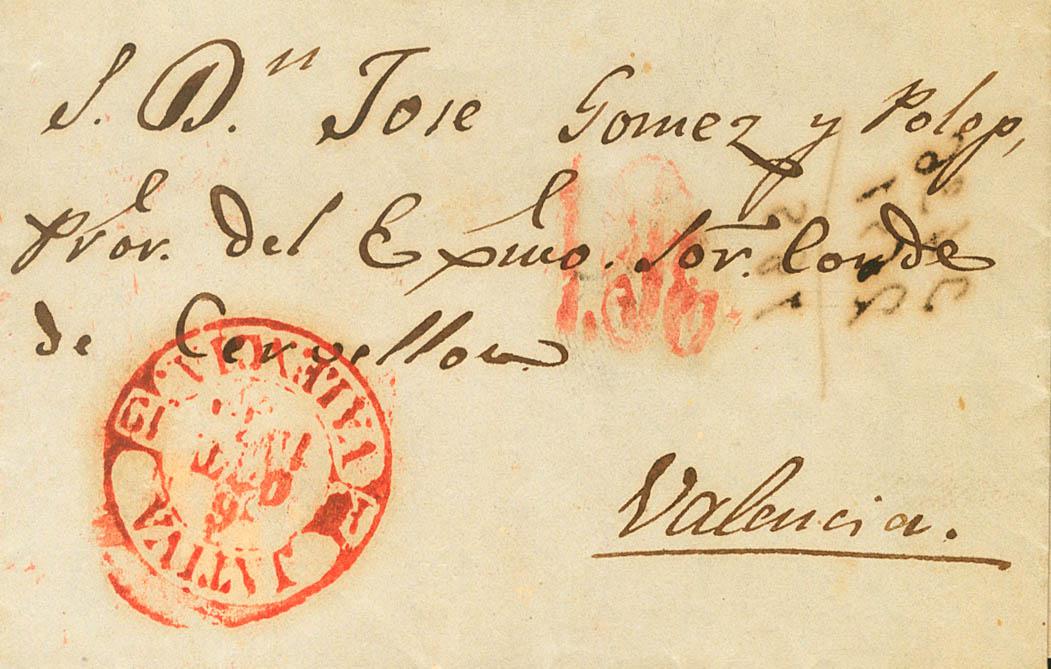 S. Dⁿ. Jose Gomez y Polop,
Prorˡ. del Exmoˡ. Sor. Conde
de Cervellon.
Valencia.
JATIVA